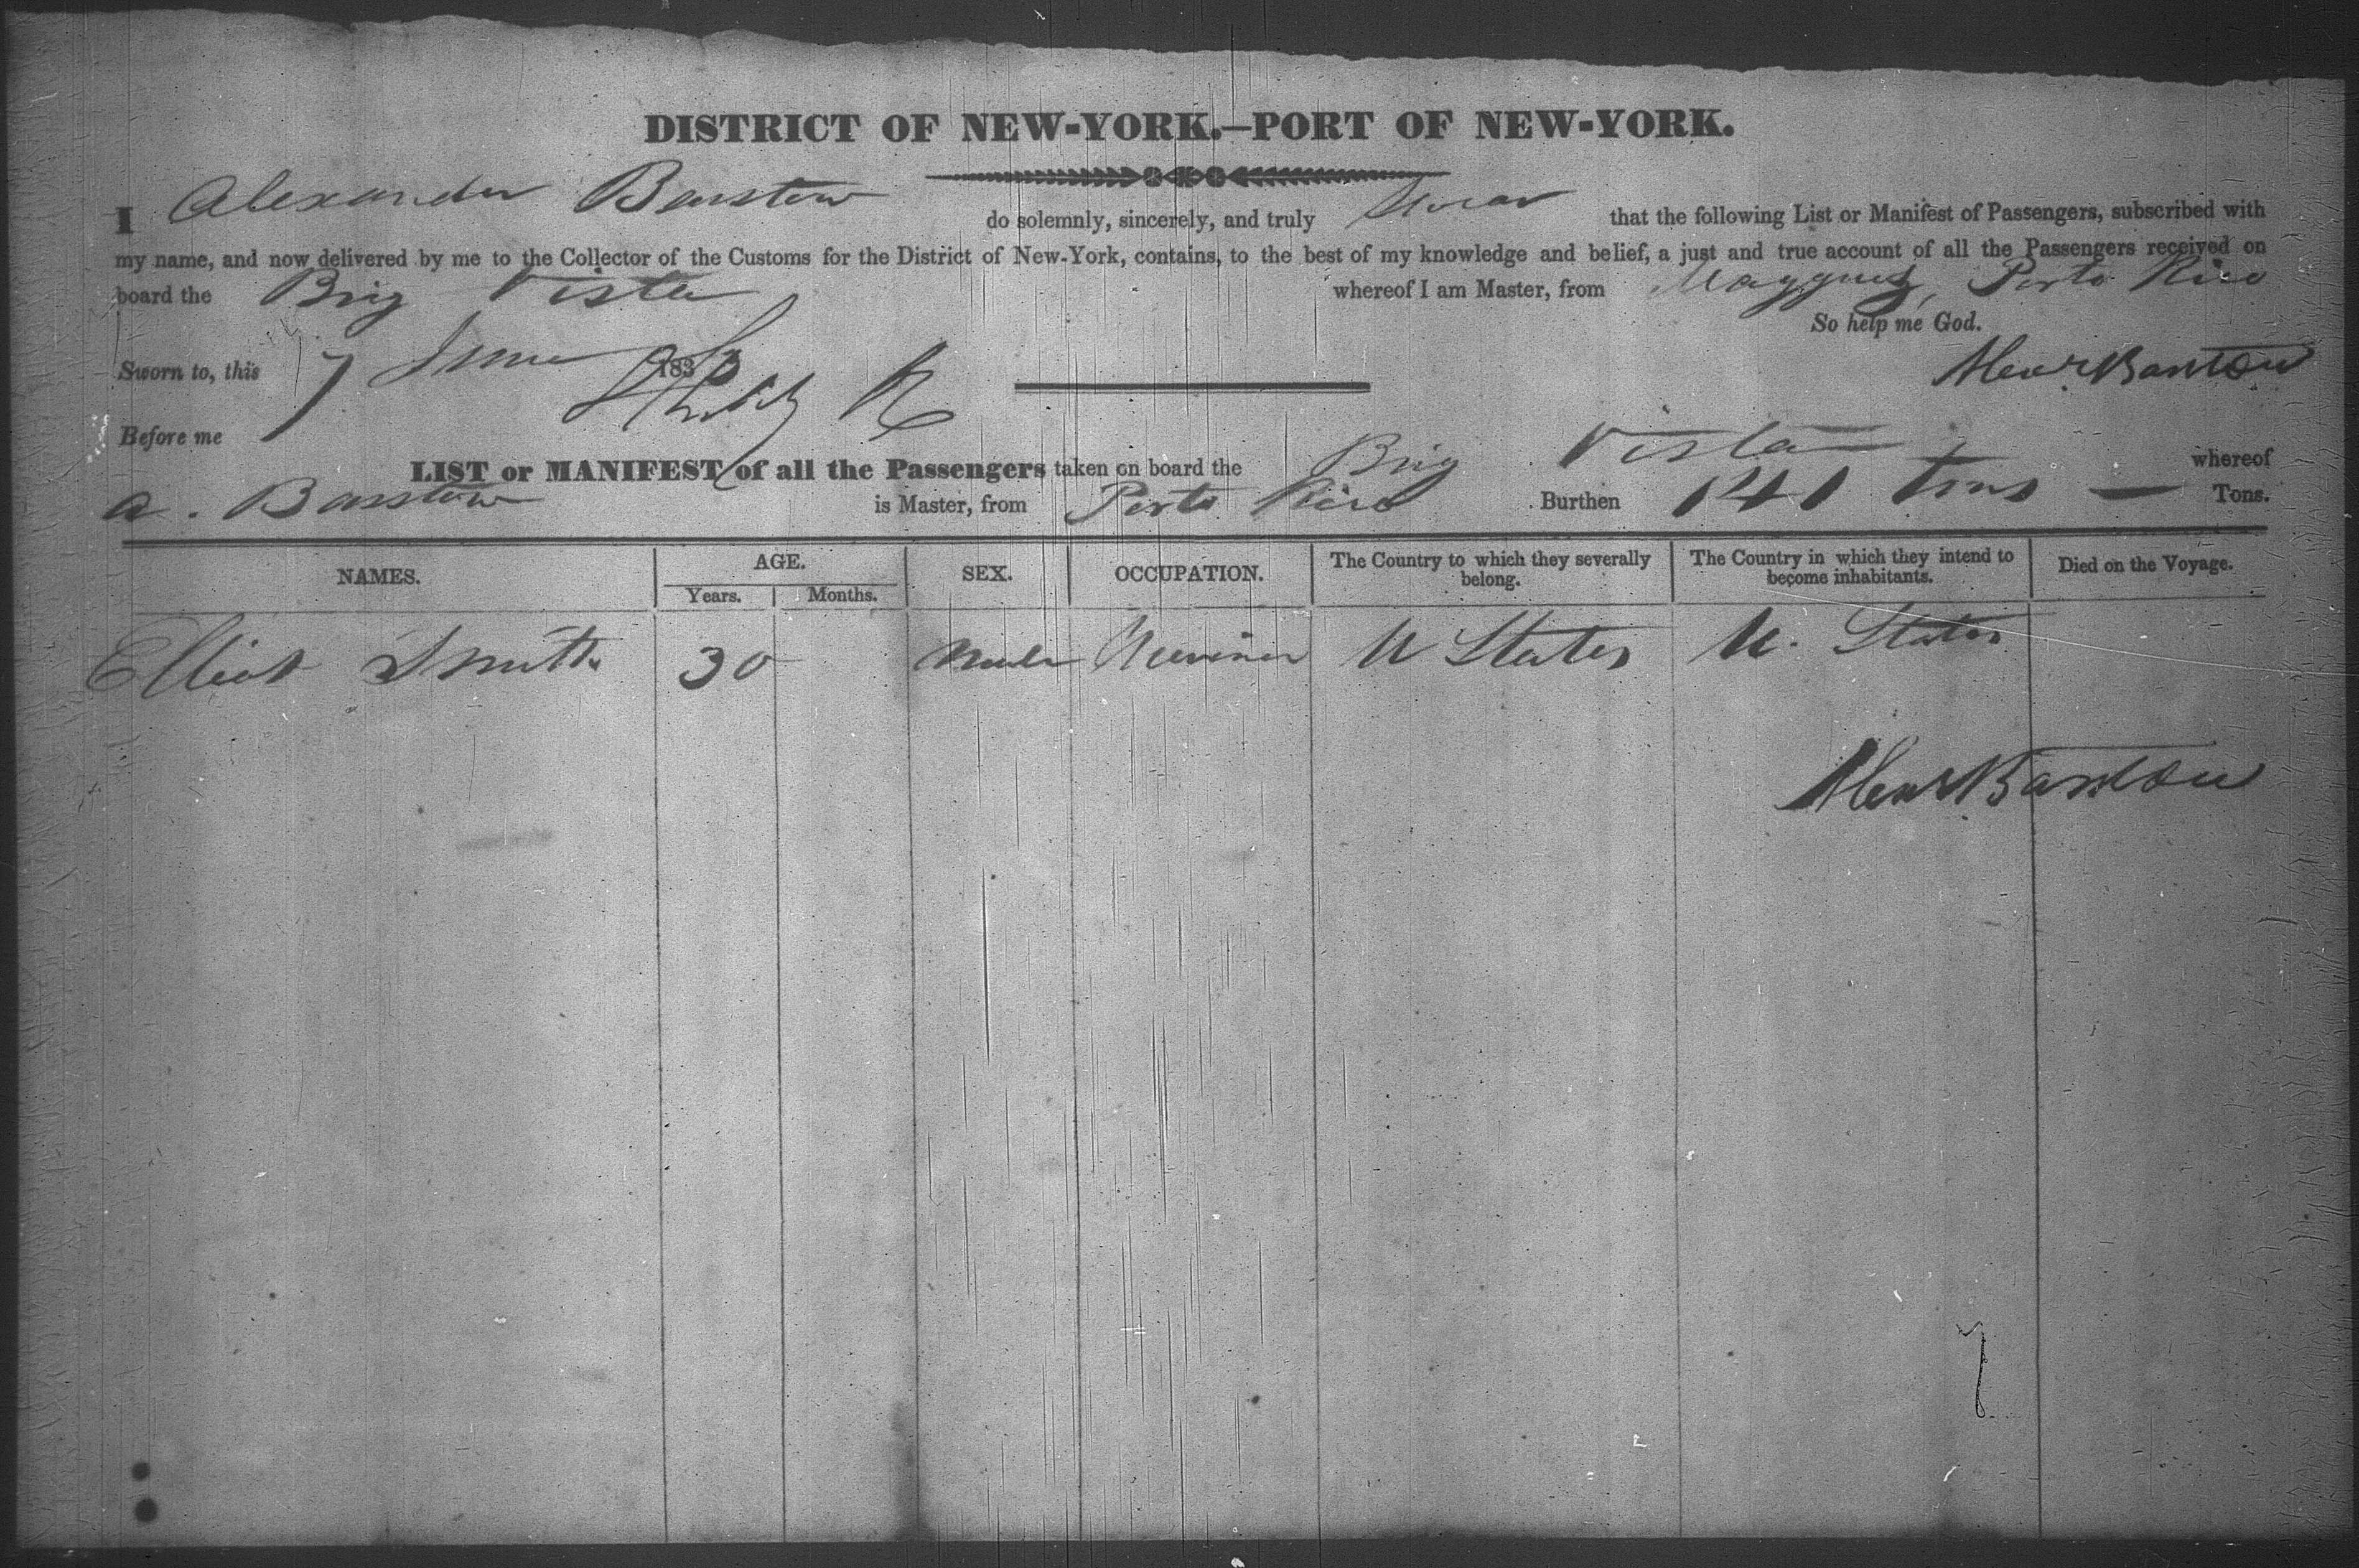 DISTRICT OF NEW-YORK.—PORT OF NEW-YORK.
I Alexander Barstow do solemnly, sincerely, and truly Swear that the following List or Manifest of Passengers, subscribed with
my name, and now delivered by me to the Collector of the Customs for the District of New-York, contains, to the best of my knowledge and belief, a just and true account of all the Passengers received on
board the Brig Vista whereof I am Master, from Mayguez, Porto Rico
So help me God.
Sworn to, this 7 June 183 Alexr Barstow
Before me
LIST or MANIFEST of all the Passengers taken on board the Brig Vista whereof
A. Barstow is Master, from Porto Rico Burthen 141 tons — Tons.
NAMES. AGE. SEX. OCCUPATION. The Country to which they severally belong. The Country in which they intend to become inhabitants. Died on the Voyage.
Years. Months.
Elliot Smith 30 Male Mariner U States U. States
Alexr Barstow